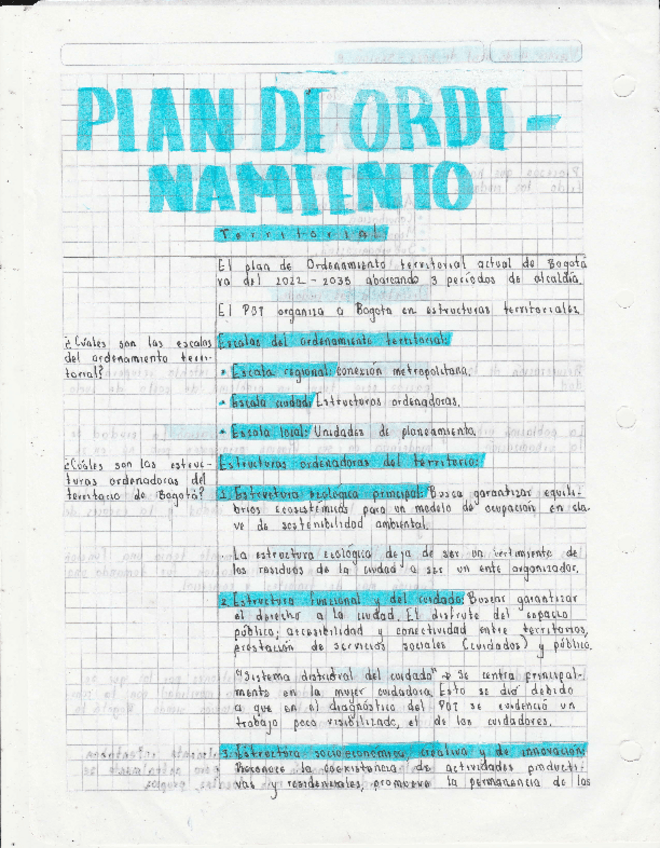 PLAN DE ORDE-
NAMIENTO
Territorial
El plan de Ordenamiento territorial actual de Bogotá
va del 2022 - 2035 abarcando 3 periodos de alcaldía.
El POT organiza a Bogota en estructuras territoriales.
¿Cuáles son las escalas
del ordenamiento terri-
torial?
Escalas del ordenamiento territorial:
• Escala regional: conexión metropolitana.
• Escala ciudad: Estructuras ordenadoras.
• Escala local: Unidades de planeamiento.
¿Cuáles son las estruc-
turas ordenadoras del
territorio de Bogotá?
Estructuras ordenadoras del territorio:
1. Estructura ecológica principal: Busca garantizar equili-
brios ecosistémicos para un modelo de ocupación en cla-
ve de sostenibilidad ambiental.
. La estructura ecológica deja de ser un vertimiento de
los residuos de la ciudad a ser un ente organizador.
2. Estructura funcional y del cuidado: Buscar garantizar
el derecho a la ciudad. El disfrute del espacio
público; accesibilidad y conectividad entre territorios,
prestación de servicios sociales (cuidados) y público.
"Sistema distrital del cuidado" → Se centra principal-
mente en la mujer cuidadora. Esto se dió debido
a que en el diagnóstico del POT se evidenció un
trabajo poco visibilizado, el de los cuidadores.
3. Estructura socioeconomica, creativa y de innovación:
Reconoce la coexistencia de actividades producti-
vas y residenciales, promueve la permanencia de los